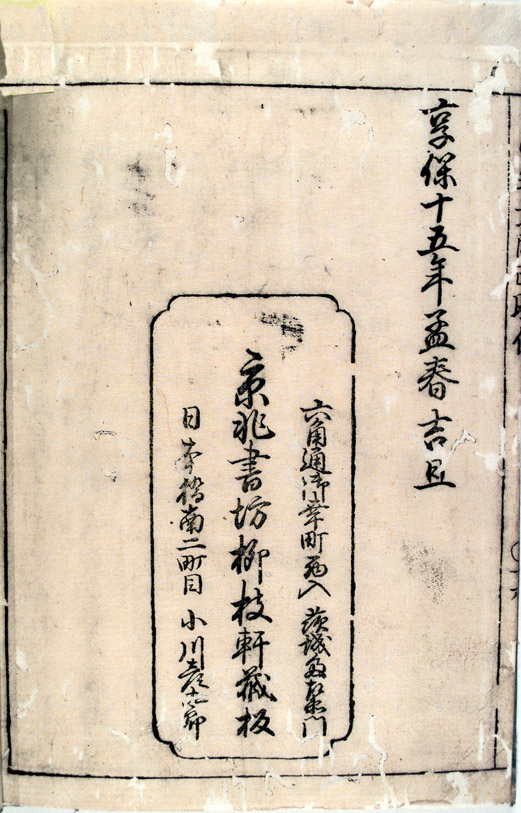 享保十五年孟春吉旦
六角通御幸町西入 茨城多左衛門
京兆書坊柳枝軒蔵板
日本橋南二町目 小川彦九郎